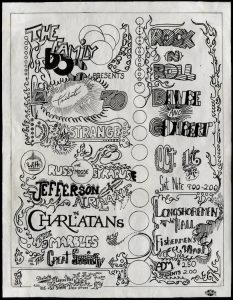 THE FAMILY
DOG
PRESENTS
A Tribute
TO
DR. STRANGE
WITH
RUSS THE MOOSE
SYRACUSE
JEFFERSON
AIRPLANE
CHARLATANS
THE
MARBLES
THE
GREAT SOCIETY
ROCK
IN
ROLL
DANCE
AND
CONCERT
OCT 16
Sat. Nite 9:00-2:00
LONGSHOREMEN'S
HALL
FISHERMEN'S
WHARF
ADM $2.50
STUDENTS 2.00